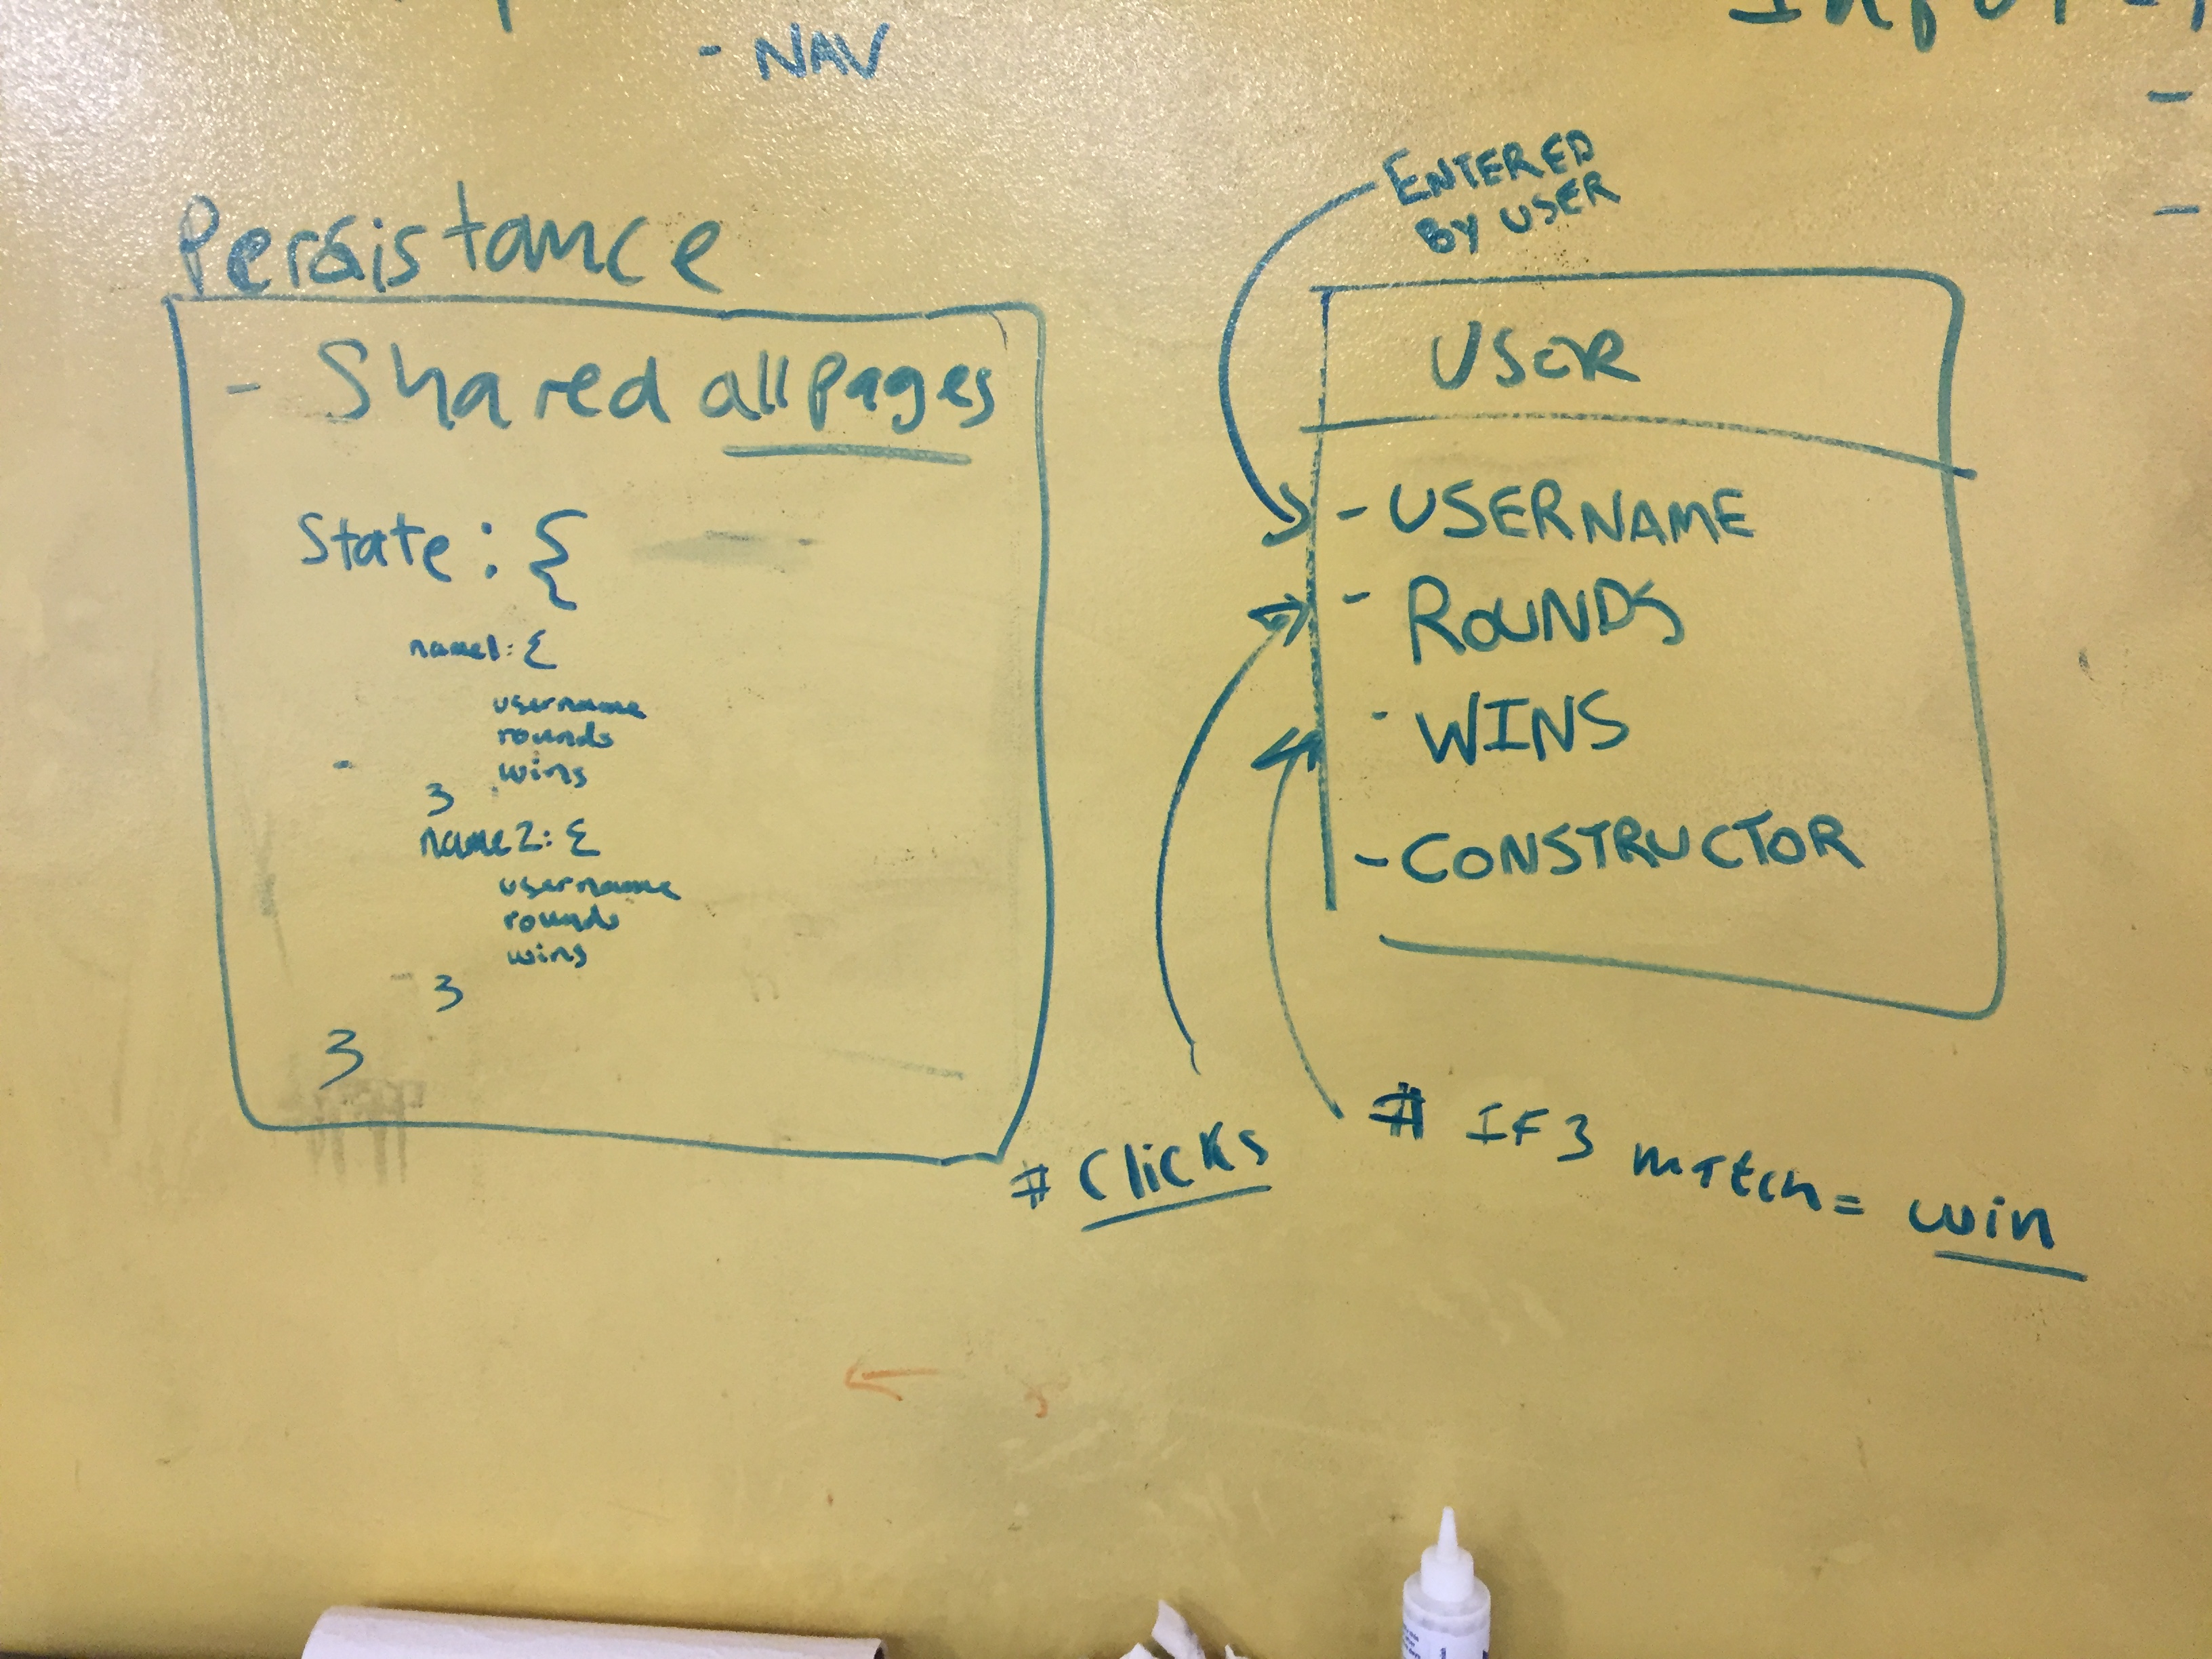 - NAV
Persistance
- Shared all pages
State: {
name1: {
username
rounds
wins
}
name2: {
username
rounds
wins
}
}
ENTERED
BY USER
USER
- USERNAME
- ROUNDS
- WINS
- CONSTRUCTOR
# Clicks
# IF 3 match = win